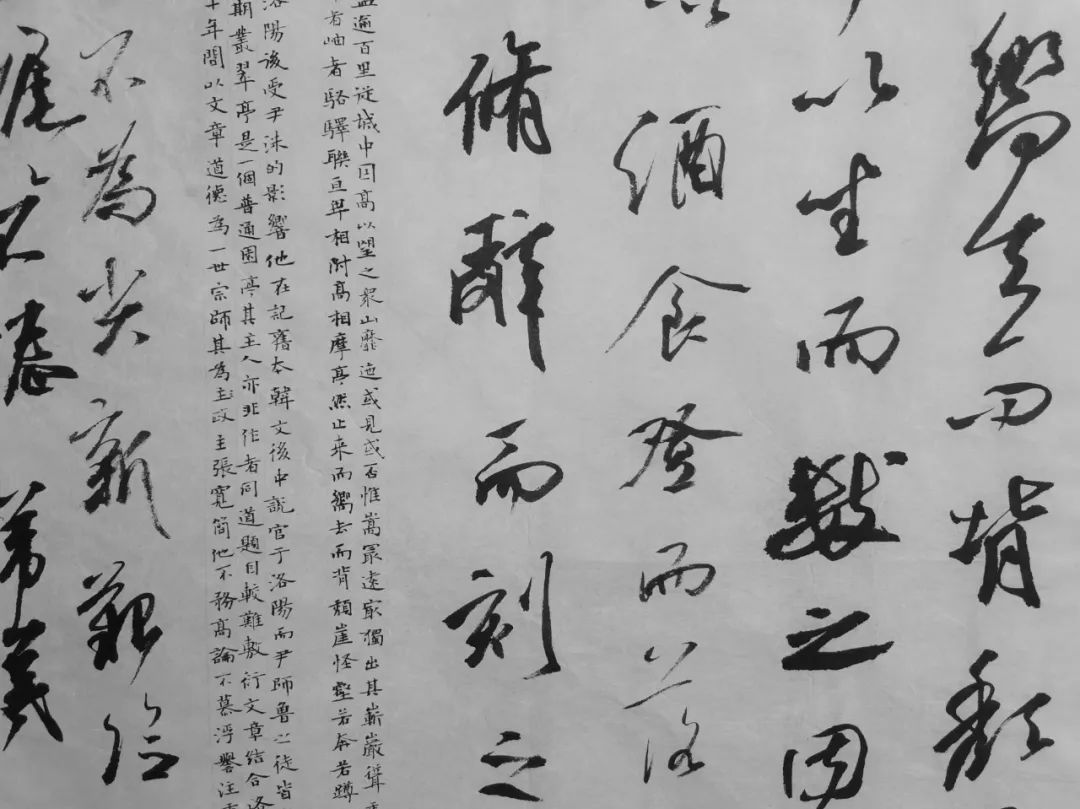 嚮去而背頹
以坐而數之因
酒食登而落
脩辭而刻之
遍百里從城中因高以望之衆山靡迤或見或否惟嵩最遠最獨出其嶄巖聳
者岫者駱驛聯亘卑相附高相摩亭然止來而嚮去而背頹崖怪壑若奔若蹲
洛陽後受尹洙的影響他在記舊本韓文後中說官于洛陽而尹師魯之徒皆
期叢翠亭是一個普通園亭其主人亦非作者同道題目較難敷衍文章結合洛
十年間以文章道德為一世宗師其為政主張寬簡他不務高論不慕浮譽注
不為尖新艱險
之態